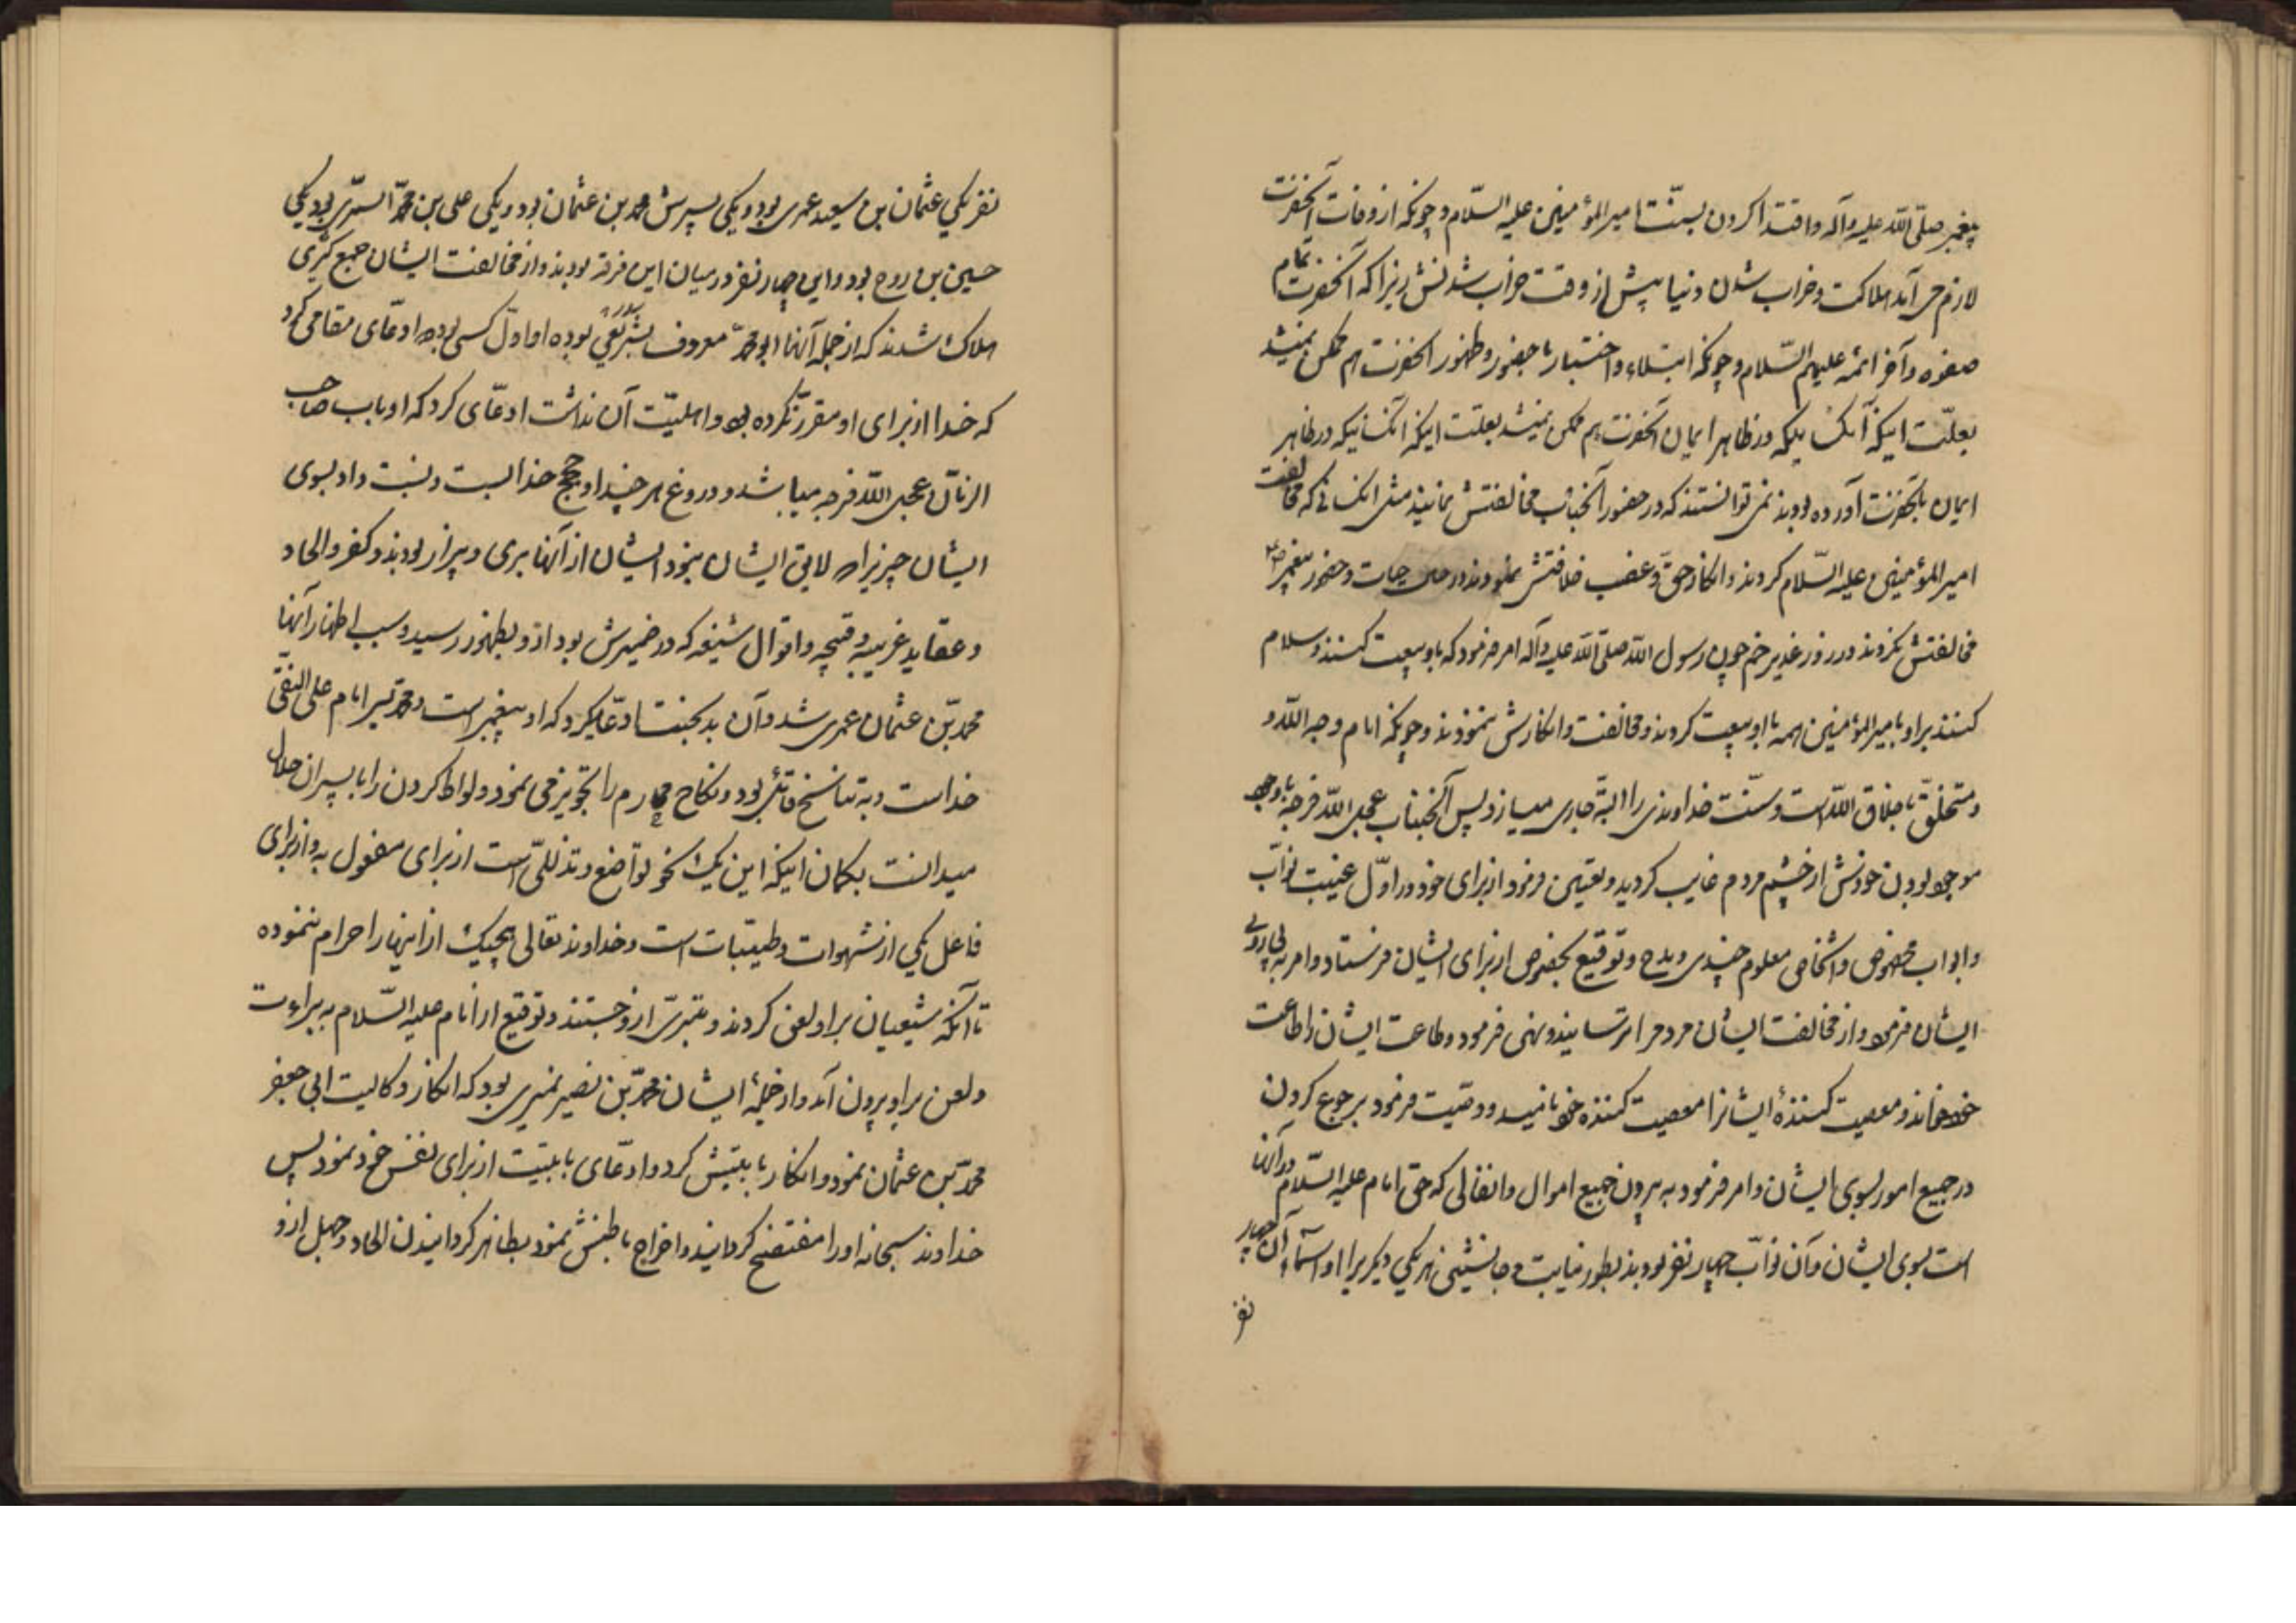 پیغمبر صلّی اللّه علیه وآله واقتدا کردن بسنّت امیرالمؤمنین علیه السّلام وچونکه از وفات آنحضرت
لازم می آمد هلاکت وخراب شدن دنیا پیش از وقت خراب شدنش زیرا که آنحضرت تمام
صفوه وآخر ائمه علیهم السّلام وچونکه ابتلاء واختبار با حضور وظهور آنحضرت هم ممکن نمیشد
بعلّت اینکه آنکسانیکه در ظاهر ایمان بآنحضرت آورده بودند نمی توانستند که در حضور آنجناب مخالفتش نمایند مثل آنکسانی که مخالفت
امیرالمؤمنین علیه السّلام کردند وانکار حقّ وغصب خلافتش نمودند در حیات وحضور پیغمبر ص
مخالفتش نکردند ودر روز غدیر خم چون رسول اللّه صلّی اللّه علیه وآله امر فرمود که باو بیعت کنند وسلام
کنند بر او بامیرالمؤمنین همه با او بیعت کردند ومخالفت وانکارش ننمودند وچونکه امام وجه اللّه و
ومتخلّق باخلاق اللّه است وسنّت خداوندی را البتّه جاری میسازد پس آنجناب عجل اللّه فرجه با وجود
موجود بودن خودش از چشم مردم غایب گردید وتعیین فرمود از برای خود در اوّل غیبت نوّاب
وابواب مخصوص واشخاص معلوم چندی ومدح وتوقیع بخصوص از برای ایشان فرستاد وامر به پیروی
ایشان فرمود واز مخالفت ایشان مردم را ترسانید ونهی فرمود وطاعت ایشان را طاعت
خود خواند ومعصیت کنندۀ ایشانرا معصیت کننده خود نامید ووصیّت فرمود برجوع کردن
در جمیع امور بسوی ایشان وامر فرمود به بردن جمیع اموال وانفالی که حق امام علیه السّلام در آنها
است بسوی ایشان وآن نوّاب چهار نفر بودند بطور نیابت وجانشینی هر یکی دیگریرا واسماء آن چهار
نفر
نفر یکی عثمان بن سعید عمری بود ویکی پسرش محمد بن عثمان بود ویکی علی بن محمّد السمّری بود ویکی
حسین بن روح بود واین چهار نفر در میان این فرقه بودند واز مخالفت ایشان جمع کثیری
هلاک شدند که از جمله آنها ابو محمّد معروف بشریعی بوده او اوّل کسی بود که ادعّای مقامی کرد
که خدا از برای او مقرّر نکرده بود واهلیّت آن نداشت ادعّای کرد که او باب صاحب
الزمان عجل اللّه فرجه میباشد ودروغ بر خدا وحجج خدا بست ونسبت داد بسوی
ایشان چیزیرا که لایق ایشان نبود ایشان از آنها بری وبیزار بودند وکفر والحاد
وعقاید غریبه وقبیحه واقوال شنیعه که در ضمیرش بود از او بظهور رسید وسبب اظهار آنها
محمّد بن عثمان عمری شد وآن بدبخت ادعّا میکرد که او پیغمبر است ومحمّد پسر امام علی النقی
خداست وبه تناسخ قائل بود ونکاح محارم را تجویز می نمود ولواط کردن را با پسران حلال
میدانست بگمان اینکه این یک نحو تواضع وتذلّلی است از برای مفعول به واز برای
فاعل یکی از شهوات وطیّبات است وخداوند تعالی هیچیک از اینها را حرام ننموده
تا آنکه شیعیان بر او لعن کردند وتبرّی از او جستند وتوقیع از امام علیه السّلام به براءت
ولعن بر او بیرون آمد واز جملۀ ایشان محمّد بن نصیر نمیری بود که انکار وکالت ابی جعفر
محمّد بن عثمان نمود وانکار بابیّتش کرد وادعّای بابیّت از برای نفس خود نمود پس
خداوند سبحانه او را مفتضح گردانید واخراج باطنش نمود بظاهر گردانیدن الحاد وجهل از او